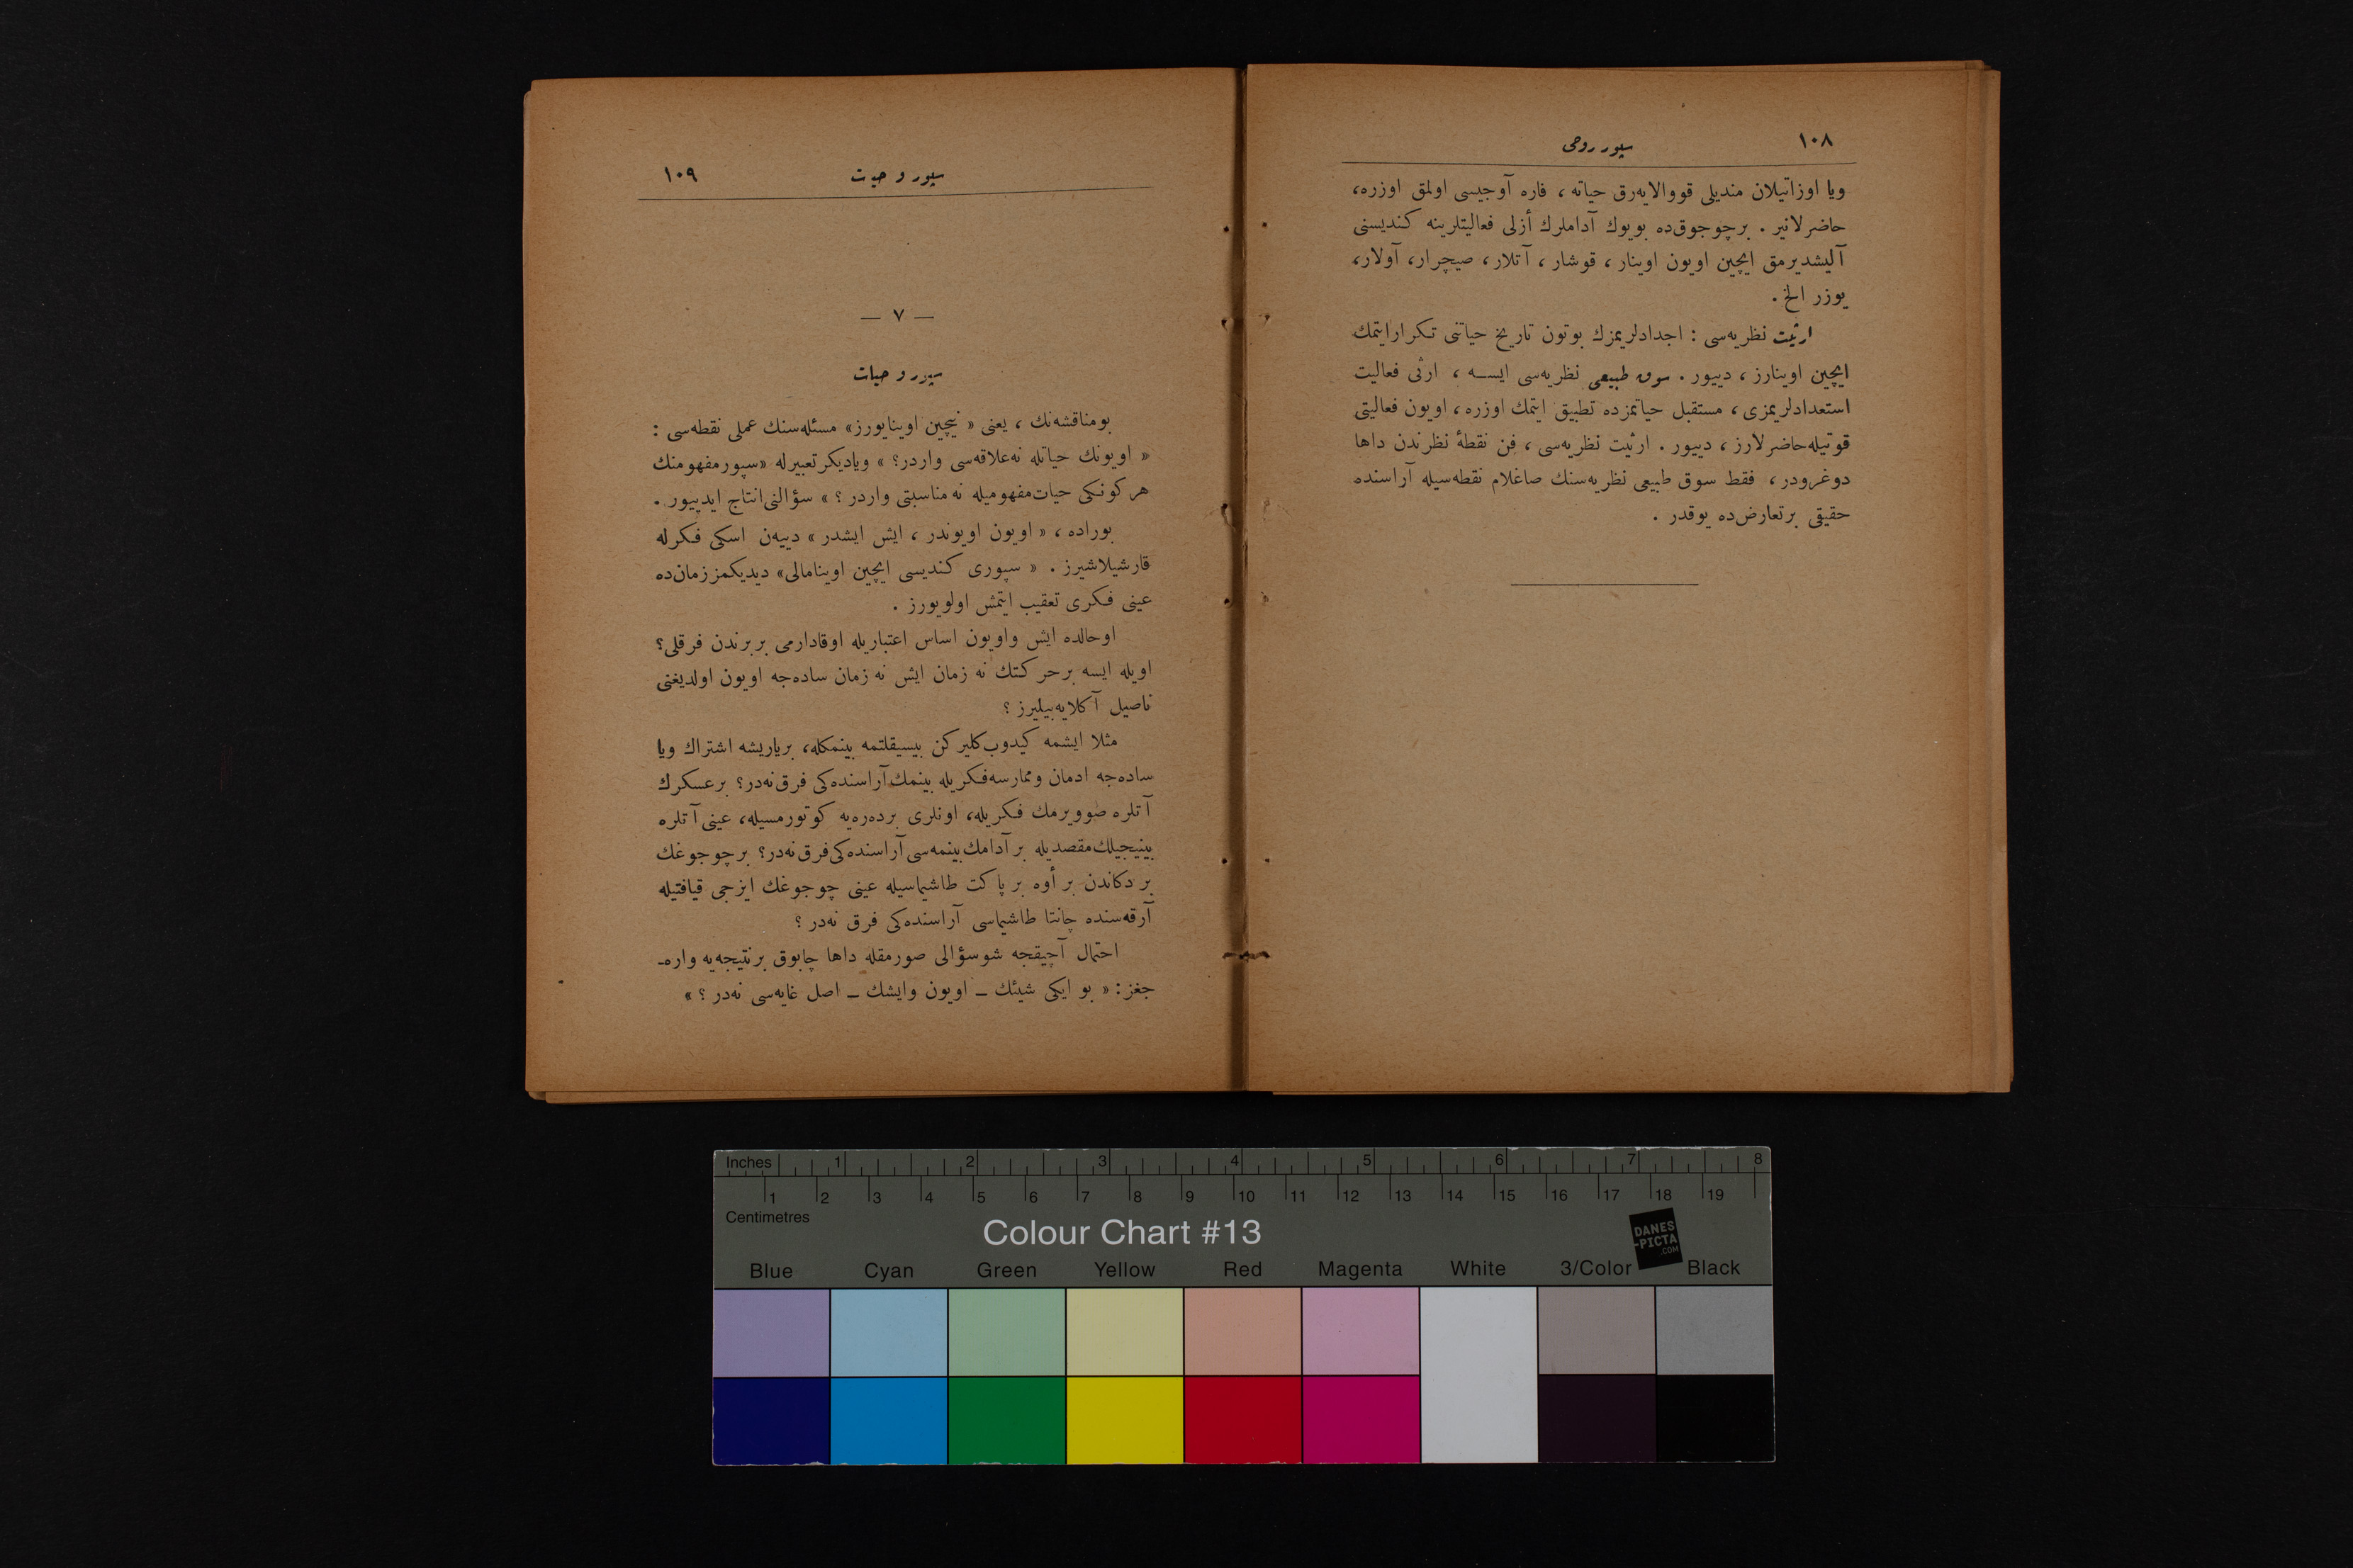 ١٠٨
سپور روحی
ویا اوزاتیلان مندیلی قووالایه‌رق حیاته ، فاره آوجیسی اولمق اوزره،
حاضرلانیر . برچوجوق‌ده بویوك آداملرك أزلی فعالیتلرینه كندیسنی
آلیشدیرمق ایچین اویون اوینار ، قوشار ، آتلار ، صیچرار، آولار،
یوزر الخ .
ارثیت نظریه‌سی : اجدادلریمزك بوتون تاریخ حیاتنی تكرارایتمك
ایچین اوینارز ، دییور . سوق طبیعی نظریه‌سی ایسـه ، ارثی فعالیت
استعدادلریمزی ، مستقبل حیاتمزده تطبیق ایتمك اوزره ، اویون فعالیتی
قوتیله حاضرلارز ، دییور . ارثیت نظریه‌سی ، فن نقطۀ نظرندن داها
دوغرودر ، فقط سوق طبیعی نظریه‌سنك صاغلام نقطه‌سیله آراسنده
حقیقی برتعارض‌ده یوقدر .
سپور و حیات
١٠٩
— ٧ —
سپور و حیات
بومناقشه‌نك ، یعنی « نیچین اوینایورز» مسئله‌سنك عملی نقطه‌سی :
« اویونك حیاتله نه‌علاقه‌سی واردر؟ » ویادیكر تعبیرله «سپورمفهومنك
هركونكی حیات‌مفهومیله نه مناسبتی واردر ؟ » سؤالنی‌انتاج ایدییور .
بوراده ، « اویون اویوندر ، ایش ایشدر » دییه‌ن اسكی فكرله
قارشیلاشیرز . « سپوری كندیسی ایچین اوینامالی» دیدیكمززمان‌ده
عینی فكری تعقیب ایتمش اولویورز .
اوحالده ایش واویون اساس اعتباریله اوقادارمی بربرندن فرقلی؟
اویله ایسه برحركتك نه زمان ایش نه زمان ساده‌جه اویون اولدیغنی
ناصیل آكلایه‌بیلیرز ؟
مثلا ایشمه كیدوب‌كلیركن بیسیقلتمه بینمكله، بریاریشه اشتراك ویا
ساده‌جه ادمان وممارسه‌فكریله بینمك‌آراسنده‌كی فرق‌نه‌در؟ برعسكرك
آتلره صوویرمك فكریله، اونلری برده‌ره‌یه كوتورمسیله، عینی‌آتلره
بینیجیلك‌مقصدیله برآدامك‌بینمه‌سی‌آراسنده‌كی‌فرق‌نه‌در؟ برچوجوغك
بر دكاندن بر أوه بر پاكت طاشیماسیله عینی چوجوغك ایزجی قیافتیله
آرقه‌سنده چانتا طاشیماسی آراسنده‌كی فرق نه‌در ؟
احتمال آچیقجه شوسؤالی صورمقله داها چابوق برنتیجه‌یه واره‌ـ
جغز: « بو ایكی شیئك ـ اویون وایشك ـ اصل غایه‌سی نه‌در ؟ »
Inches 1 2 3 4 5 6 7 8
1 2 3 4 5 6 7 8 9 10 11 12 13 14 15 16 17 18 19
Centimetres
Colour Chart #13
DANES
-PICTA
.COM
Blue Cyan Green Yellow Red Magenta White 3/Color Black